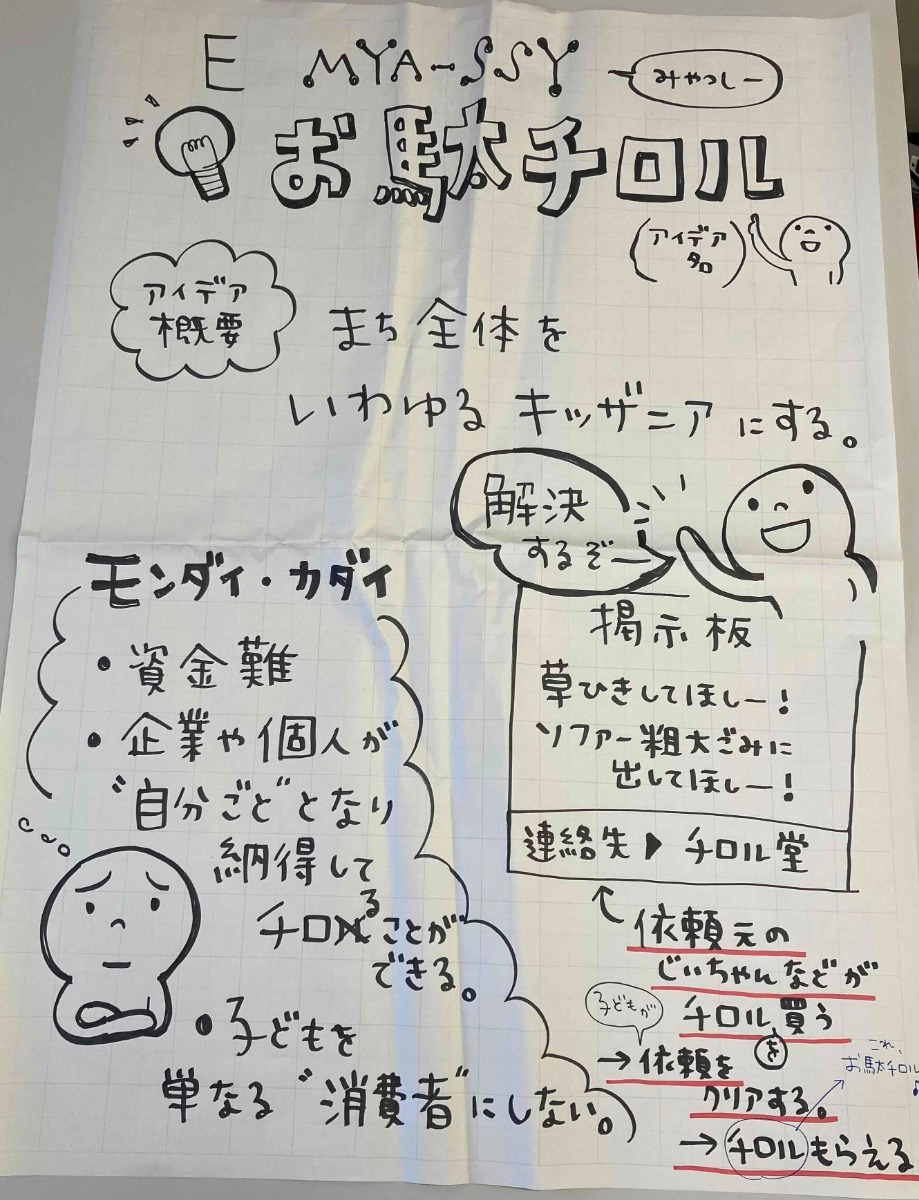 E MYA-SSY
みやっしー
お駄チロル
(アイデア名)
アイデア
概要
まち全体を
いわゆるキッザニアにする。
解決
するぞー
モンダイ・カダイ
・資金難
・企業や個人が
“自分ごと”となり
納得して
チロることが
できる。
・子どもを
単なる“消費者”にしない。
掲示板
草ひきしてほしー!
ソファー粗大ごみに
出してほしー!
連絡先▶チロル堂
依頼元の
じいちゃんなどが
チロルを買う
子どもが
→依頼を
クリアする。
→チロルもらえる
これ、
お駄チロル♪